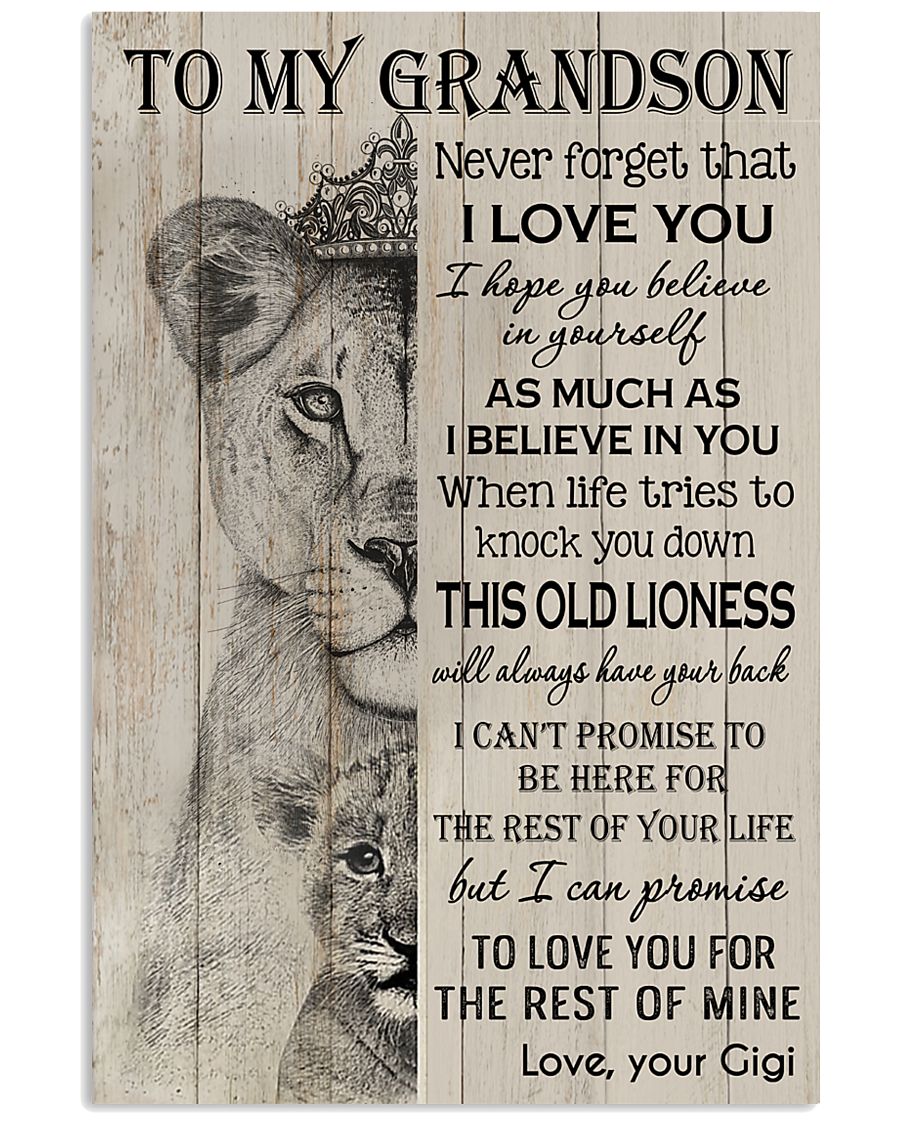 TO MY GRANDSON
Never forget that
I LOVE YOU
I hope you believe
in yourself
AS MUCH AS
I BELIEVE IN YOU
When life tries to
knock you down
THIS OLD LIONESS
will always have your back
I CAN'T PROMISE TO
BE HERE FOR
THE REST OF YOUR LIFE
but I can promise
TO LOVE YOU FOR
THE REST OF MINE
Love, your Gigi